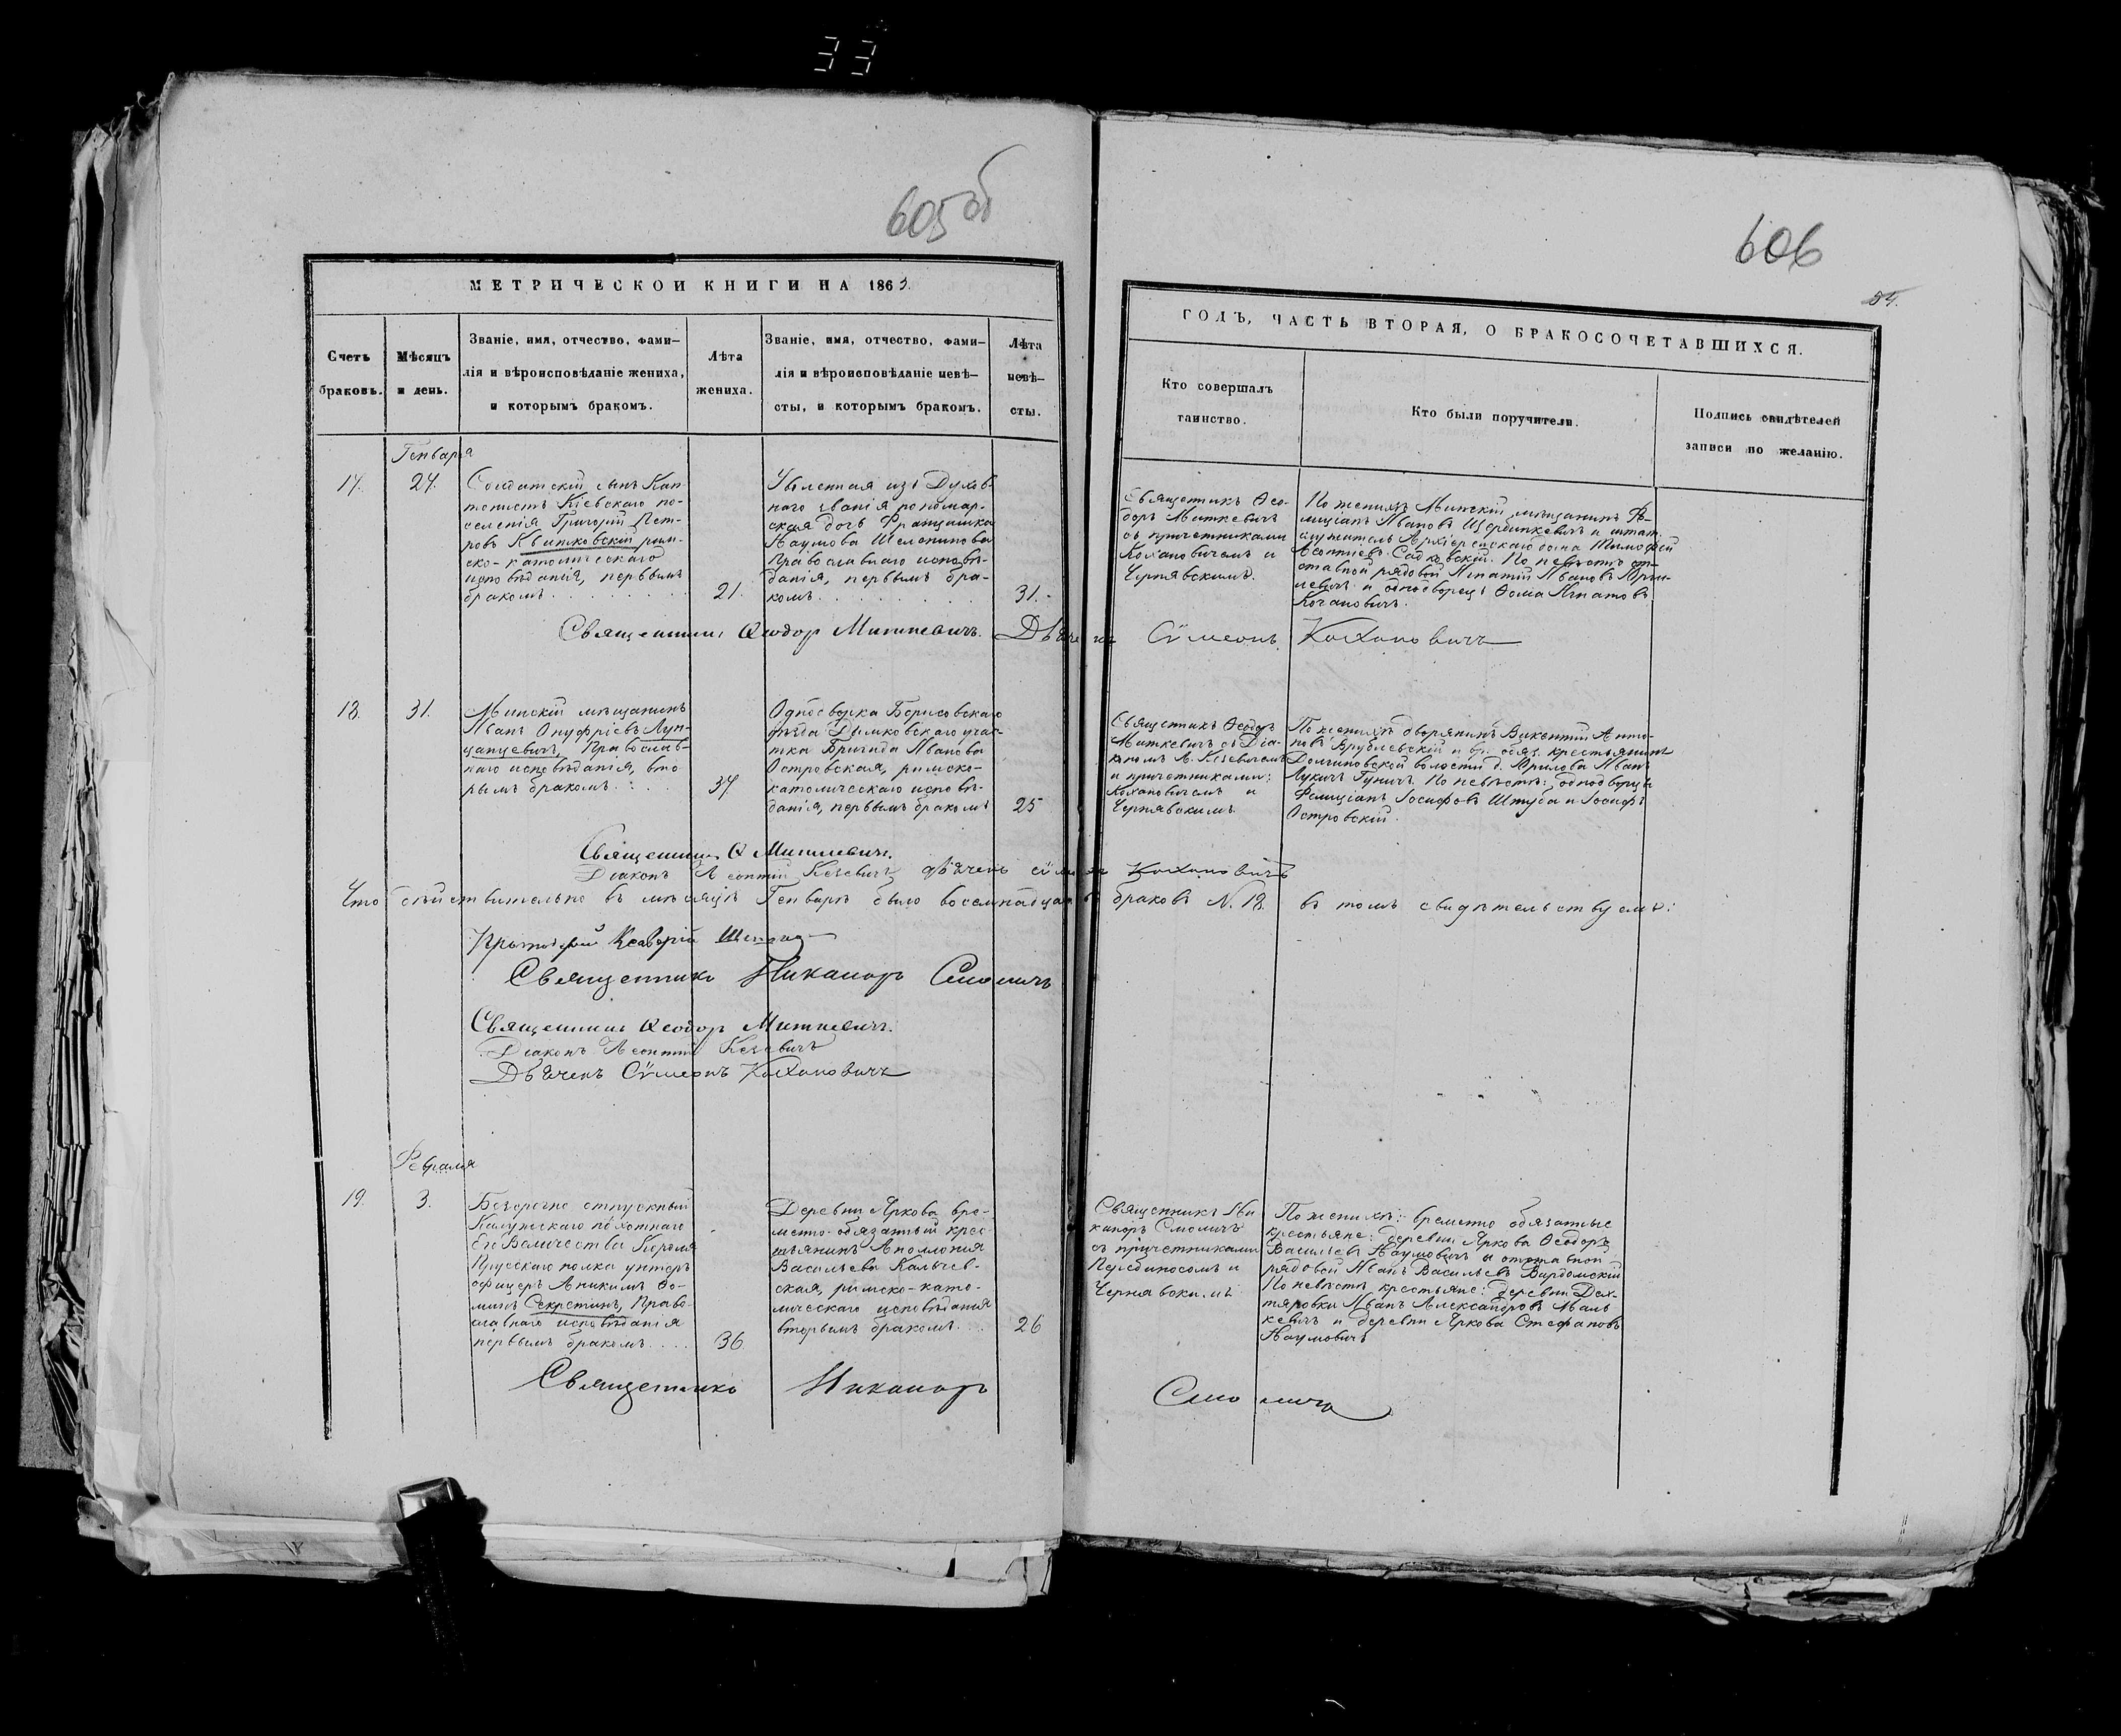 33
605 об
606
54.
МЕТРИЧЕСКОЙ КНИГИ НА 1863.
Счетъ
браковъ.
Мѣсяцъ
и день.
Званіе, имя, отчество, фами–
лія и вѣроисповѣданіе жениха,
и которымъ бракомъ.
Лѣта
жениха.
Званіе, имя, отчество, фами–
лія и вѣроисповѣданіе невѣ–
сты, и которымъ бракомъ.
Лѣта
невѣ–
сты.
ГОДЪ, ЧАСТЬ ВТОРАЯ, О БРАКОСОЧЕТАВШИХСЯ.
Кто совершалъ
таинство.
Кто были поручители.
Подпись свидѣтелей
записи по желанію.
Генваря
17.
24.
Солдатскій сынъ Кан-
тонистъ Кіевскаго по-
селенія Григорій Пет-
ровъ Квитковскій рим-
ско-католическаго
исповѣданія, первымъ
бракомъ
21.
Уволенная изъ Духов-
наго званія пономар-
ская дочь Францишка
Наумова Шелепинова
Православнаго исповѣ-
данія, первымъ бра-
комъ
31.
Священникъ Ѳео-
доръ Миткевичъ
съ причетниками
Кохановичемъ и
Чернявскимъ.
По женихѣ Минскій мѣщанинъ Фе-
лиціанъ Ивановъ Щербинкевичъ и штат.
служитель Архіерейскаго дома Тимофей
Леонтіевъ Садковскій. По невѣстѣ от-
ставной рядовой Игнатій Ивановъ
левичъ и однодворецъ Ѳома Игнатовъ
Кохановичъ.
Священникъ Ѳеодор Миткевичъ. Дьячекъ Сѵмеонъ Кохановичъ
18.
31.
Минскій мѣщанинъ
Иванъ Онуфріевъ Луп-
цанцевичъ, Православ-
наго исповѣданія, вто-
рымъ бракомъ
37
Однодворка Борисовскаго
уѣзда Дымковскаго учас-
тка Бригида Иванова
Островская, римско-
католическаго исповѣ-
данія, первымъ бракомъ
25
Священникъ Ѳеодоръ
Миткевичъ съ Діа-
кономъ Л. Кезевичемъ
и причетниками:
Кохановичемъ и
Чернявскимъ
По женихѣ дворянинъ Викентій Анто-
новъ Врублевскій и вр. обяз. крестьянинъ
Долгиновской волости д. Юрилова Иванъ
Лукичъ Гуничъ. По невѣстѣ: однодворцы
Фелиціанъ Іосифовъ Штуба и Іосифъ
Островскій.
Священникъ Ѳ Миткевичъ.
Діаконъ Леонтій Кезевичъ дьячекъ Сѵмеонъ Кохановичъ
Что дѣйствительно въ мѣсяцѣ Генварѣ было восемнадцать браковъ N. 18. въ томъ свидѣтельствуемъ:
Священникъ Никаноръ Смоличъ
Священникъ Ѳеодор Миткевичъ.
Діаконъ Леонтій Кезевичъ
Дьячекъ Сѵмеонъ Кохановичъ
Февраля
19.
3.
Безсрочно отпускный
Калужскаго пѣхотнаго
Его Величества Короля
Прусскаго полка унтеръ
офицеръ Аникимъ Ѳо-
минъ Секретинъ, Право-
славнаго исповѣданія
первымъ бракомъ
36.
Деревни Яркова вре-
менно-обязанный крес-
тьянинъ Аполлонія
Васильева Калычев-
ская, римско-като-
лическаго исповѣданія
вторымъ бракомъ
26
Священникъ Ни
каноръ Смоличъ
съ причетниками
и
Чернявскимъ
По женихѣ: временно обязанные
крестьяне: деревни Яркова Ѳеодоръ
Васильевъ Наумовичъ и отставной
рядовой Иванъ Васильевъ Вардомскій
По невѣстѣ крестьяне: деревни Дех-
тяровки Иванъ Александровъ Маль
кевичъ и деревни Яркова Стефановъ
Наумовичъ
Священникъ Никаноръ Смоличъ